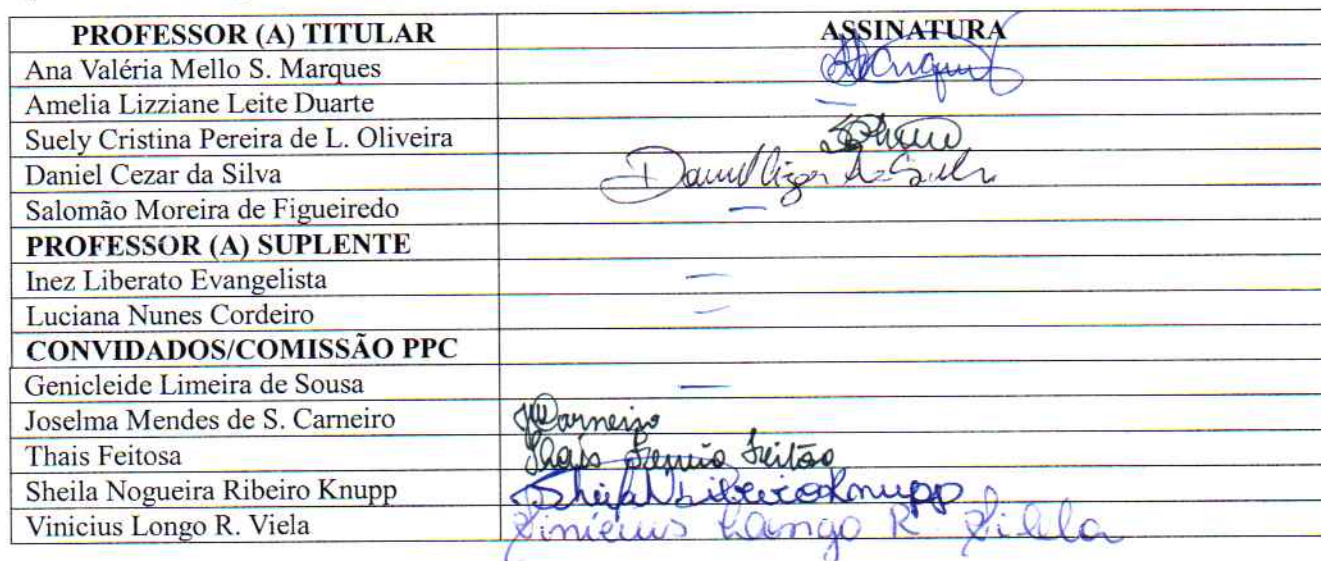 PROFESSOR (A) TITULAR ASSINATURA
Ana Valéria Mello S. Marques
Amelia Lizziane Leite Duarte —
Suely Cristina Pereira de L. Oliveira
Daniel Cezar da Silva Daniel Cezar da Silva
Salomão Moreira de Figueiredo —
PROFESSOR (A) SUPLENTE
Inez Liberato Evangelista —
Luciana Nunes Cordeiro —
CONVIDADOS/COMISSÃO PPC
Genicleide Limeira de Sousa —
Joselma Mendes de S. Carneiro Carneiro
Thais Feitosa Thais
Sheila Nogueira Ribeiro Knupp Sheila N Ribeiro Knupp
Vinicius Longo R. Viela Vinicius Longo R. Vilela